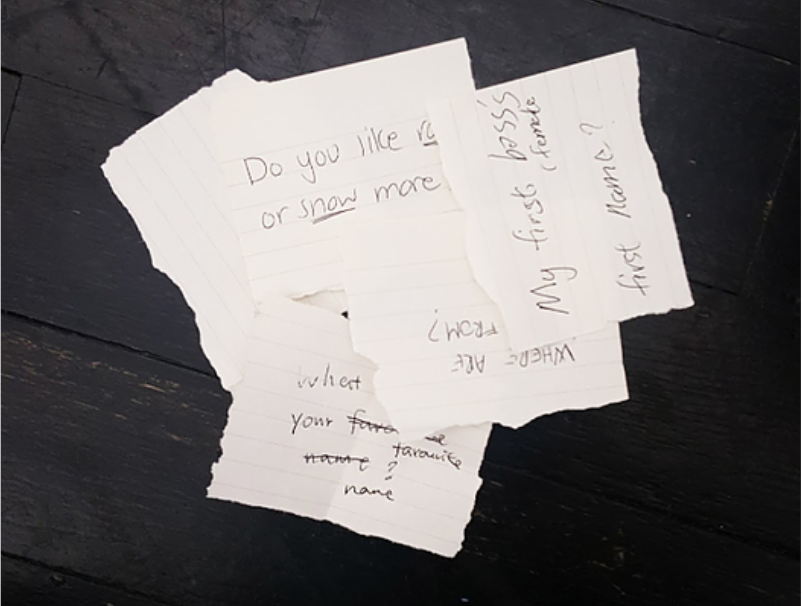 Do you like
or snow more
My first boss's
(female
first name?
WHERE ARE
FROM?
What
your
favourite
name ?
name